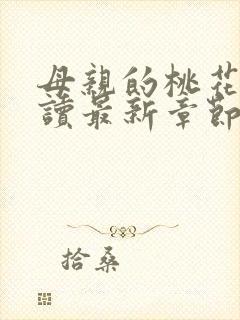 母親的桃花
讀最新章節
拾桑